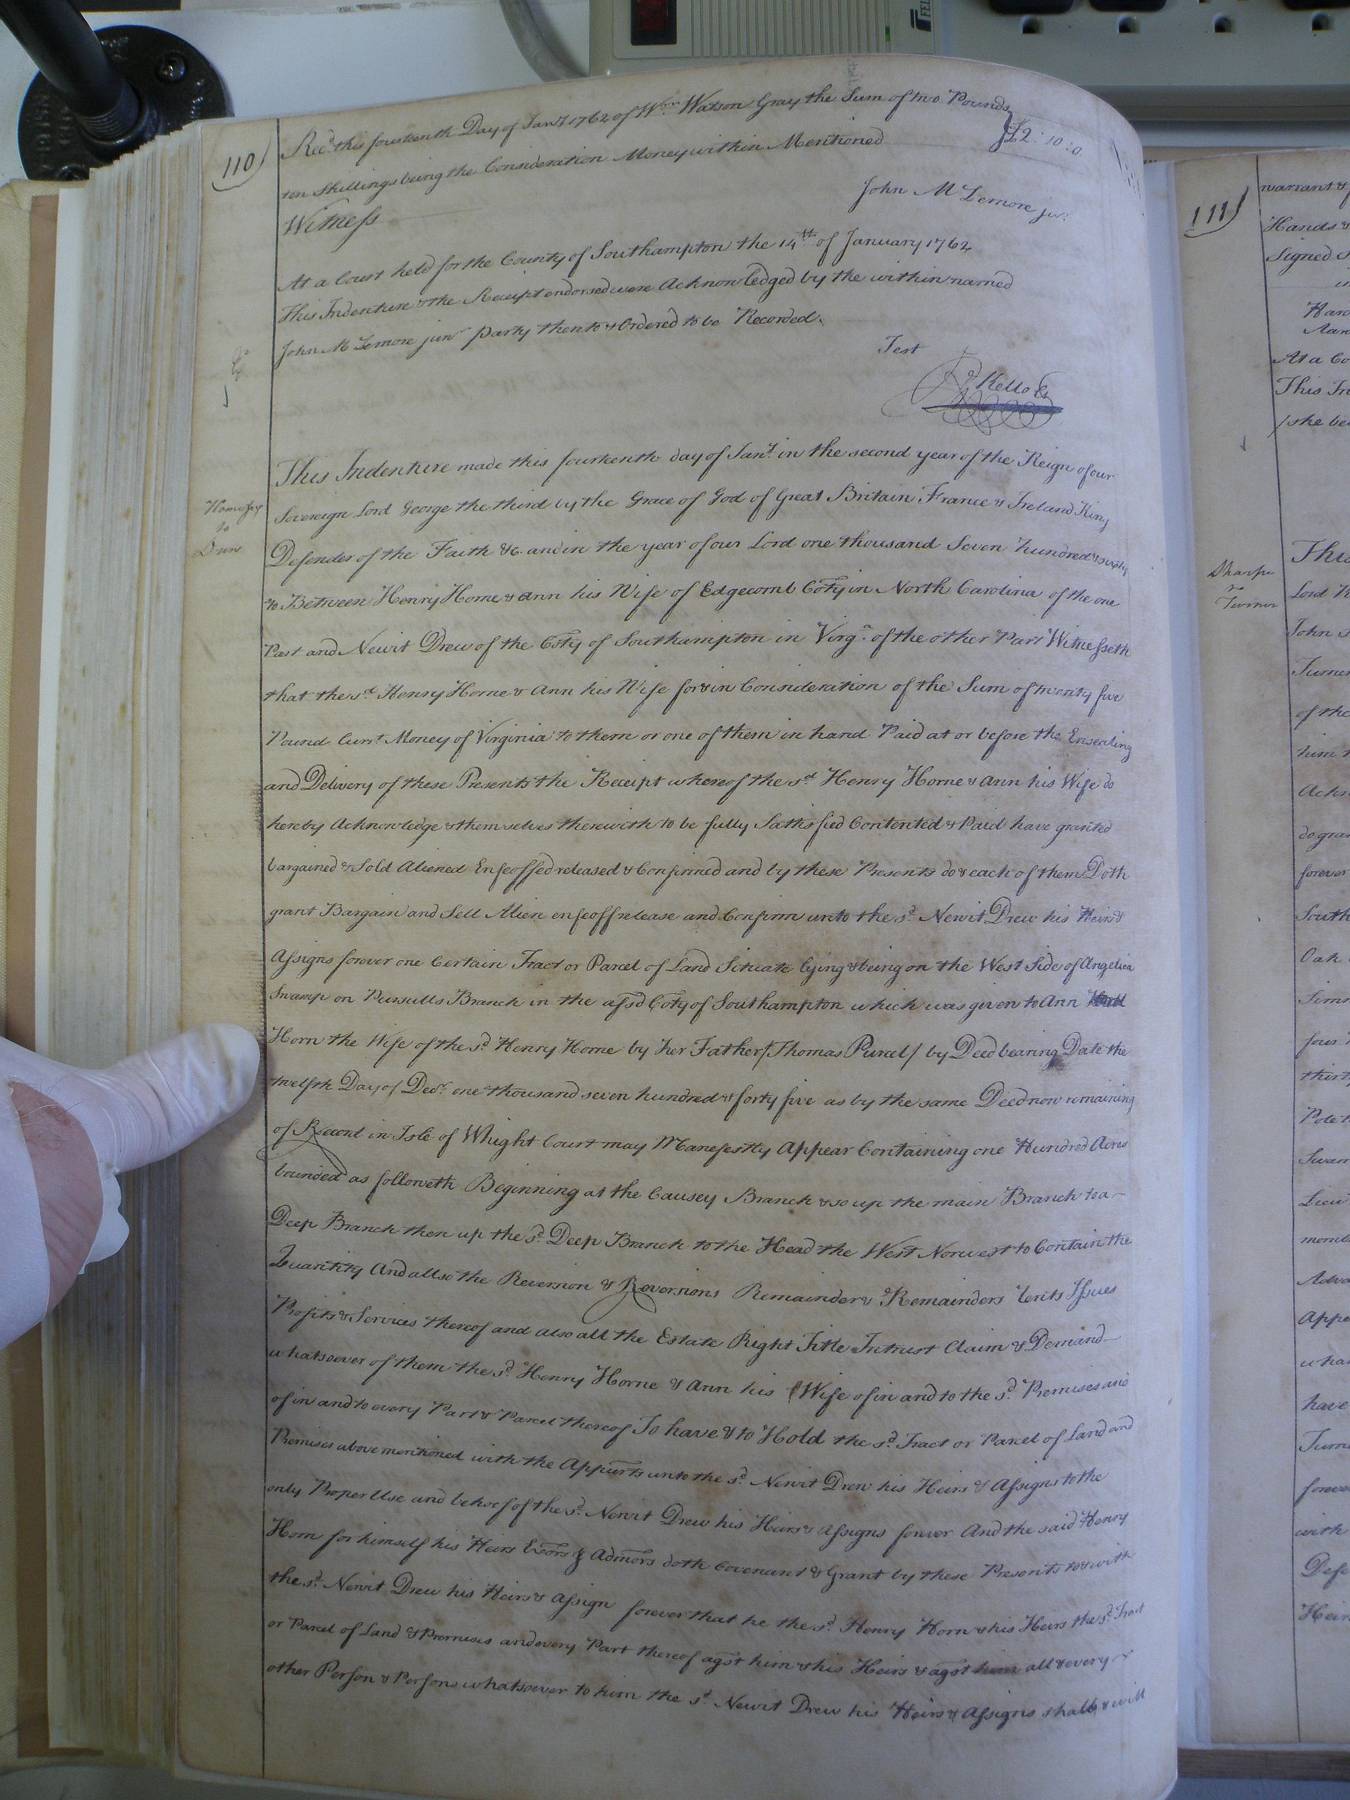 110)
Rec.d this fourteenth Day of Jan.y 1762 of W.m Watson Gray the Sum of two Pounds
ten Shillings being the Consideration Money within Mentioned } £2:10:0
Witness
John M Lemore jur.
At a Court held for the County of Southampton the 14.th of January 1762
This Indenture & the Receipt endorsed were Acknowledged by the within named
John M Lemore jun.r party thereto & Ordered to be Recorded.
Test
R. Kello
Horne
to
Drew
This Indenture made this fourteenth day of Jan.y in the second year of the Reign of our
Sovereign Lord George the third by the Grace of God of Great Britain France & Ireland King
Defender of the Faith &c. and in the year of our Lord one thousand Seven hundred & sixty
Between Henry Horne & Ann his Wife of Edgecomb Coty in North Carolina of the one
Part and Newit Drew of the Coty of Southampton in Virg.a of the other Part Witnesseth
that the s.d Henry Horne & Ann his Wife for & in Consideration of the Sum of twenty five
Pound Curr.t Money of Virginia to them or one of them in hand Paid at or before the Ensealing
and Delivery of these Presents the Receipt whereof the s.d Henry Horne & Ann his Wife do
hereby Acknowledge & themselves therewith to be fully Sattisfied Contented & Paid have granted
bargained & Sold Aliened Enfeoffed released & Confirmed and by these Presents do & each of them Doth
grant Bargain and Sell Alien enfeoff release and Confirm unto the s.d Newit Drew his Heirs &
Assigns forever one Certain Tract or Parcel of Land Situate lying & being on the West Side of Angelica
Swamp on Pursells Branch in the afsd Coty of Southampton which was given to Ann
Horn the Wife of the s.d Henry Horne by her Father /Thomas Purcel/ by Deed bearing Date the
twelfth Day of Dec.r one thousand seven hundred & forty five as by the same Deed now remaining
of Record in Isle of Whight Court may Manefestly Appear Containing one Hundred Acres
bounded as followeth Beginning at the Causey Branch & so up the main Branch to a
Deep Branch then up the s.d Deep Branch to the Head the West Norwest to Contain the
Quantity And allso the Reversion & Reversions Remainder & Remainders Rents Issues
Profits & Services thereof and also all the Estate Right Title Intrust Claim & Demand
whatsoever of them the s.d Henry Horne & Ann his Wife of in and to the s.d Premises and
of in and to every Part & Parcel thereof To have & to Hold the s.d Tract or Parcel of Land and
Premises above mentioned with the Appurts unto the s.d Newit Drew his Heirs & Assigns to the
only Proper Use and behoof of the s.d Newit Drew his Heirs & Assigns forever And the said Henry
Horn for himself his Heirs Exors & Admors doth Covenant & Grant by these Presents to & with
the s.d Newit Drew his Heirs & Assign forever that he the s.d Henry Horn & his Heirs the s.d Tract
or Parcel of Land & Premises and every Part thereof agst him & his Heirs & agst him all & every
other Person & Persons whatsoever to him the s.d Newit Drew his Heirs & Assigns shall & will
111)
warrant &
Hands &
Signed
Har
Aar
At a Co
This In
/she be
Sharpe
to
Turner
This
Lord
John
Turner
of the
him
Ack
do gra
forever
South
Oak
Simm
four
thirt
Swam
Lieu
memb
Adva
Appe
wha
have
Turn
forever
with
Defe
Heir